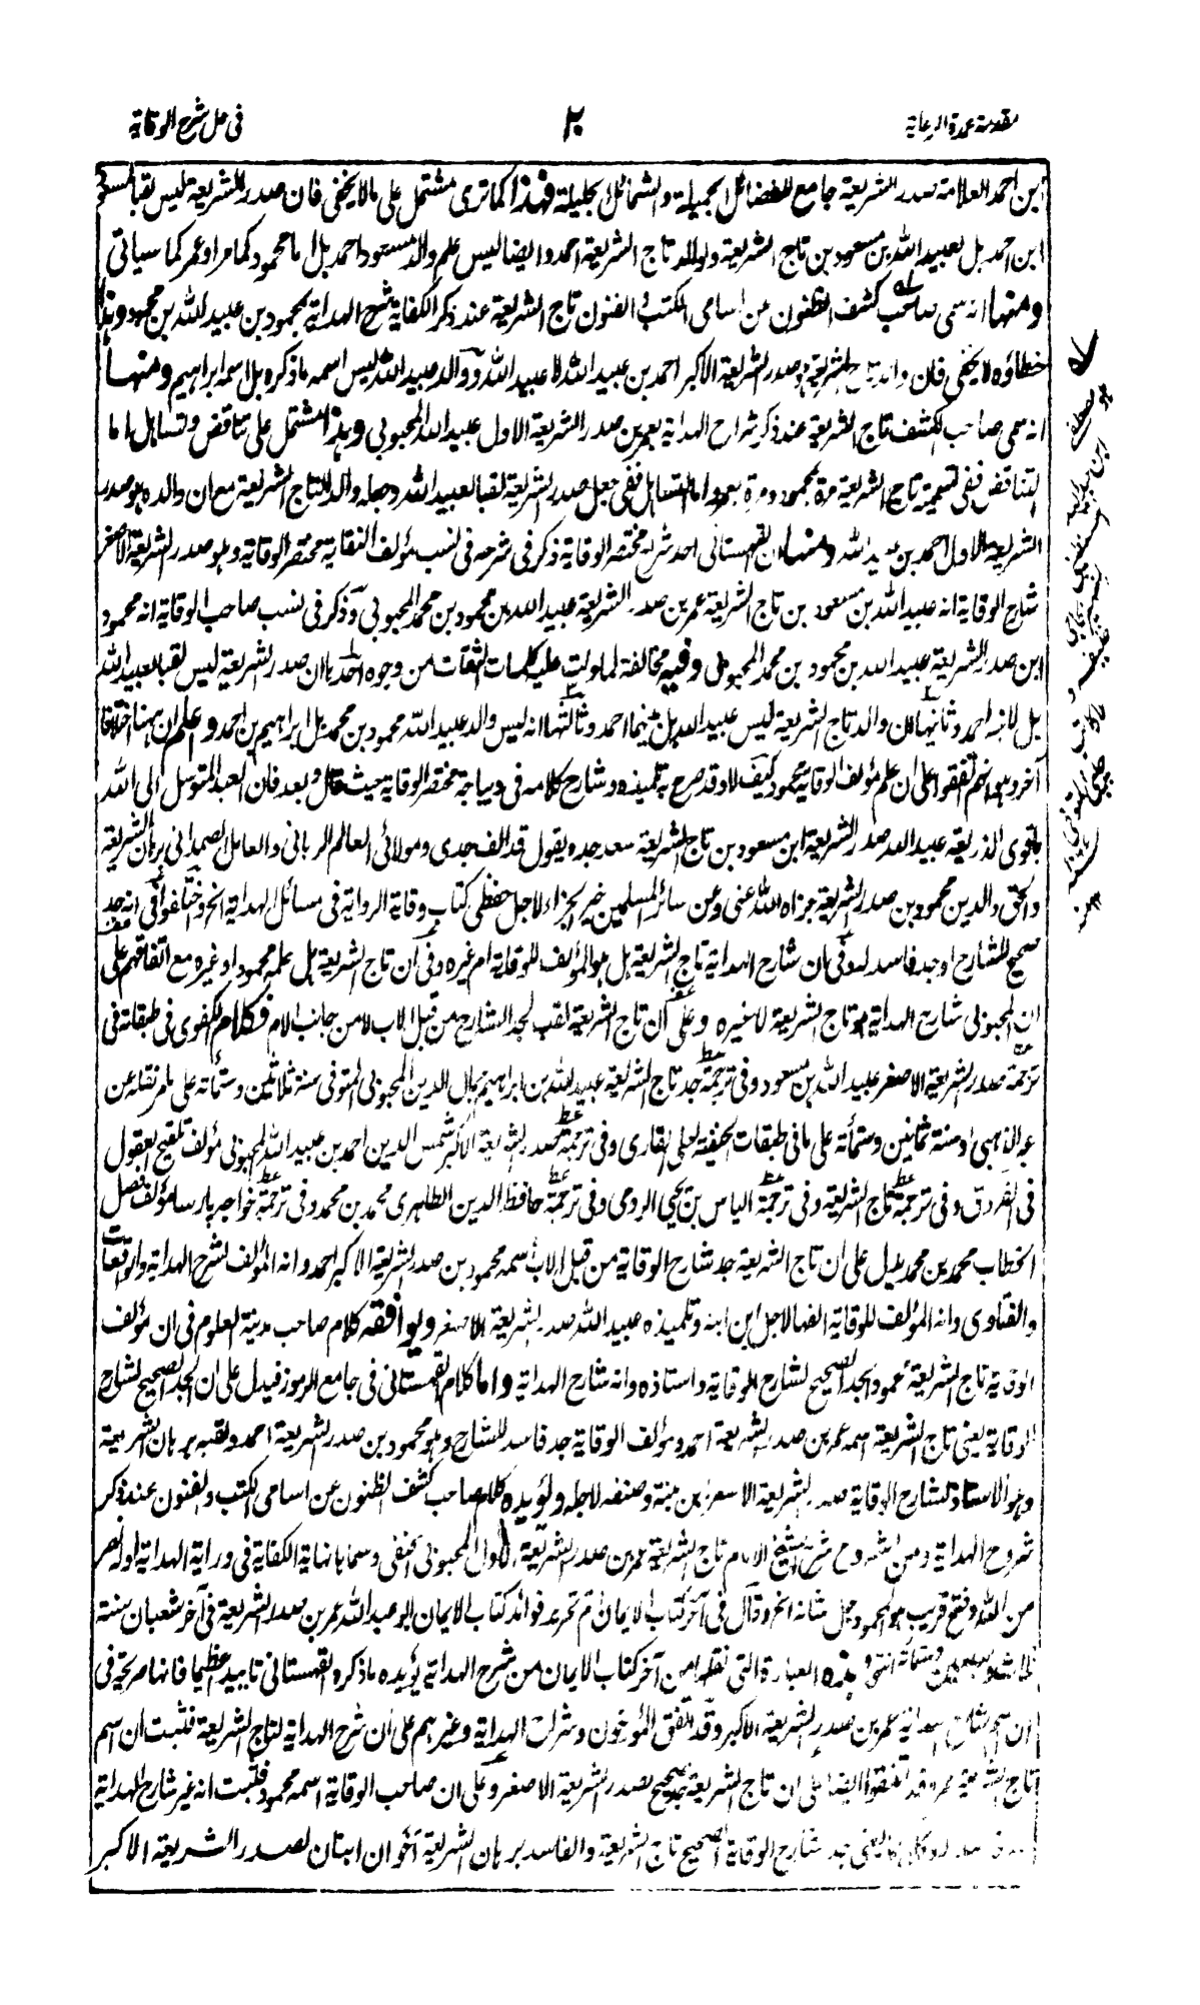 مقدمة عمدة الرعاية
٢٠
في حل شرح الوقاية
ابن احمد العلامة صدر الشريعة جامع الفضائل الجميلة والشمائل الجليلة فهذا كما ترى مشتمل على ما لا يخفى فان صدر الشريعة ليس لقبا لمسعود
ابن احمد بل لعبيد الله بن مسعود بن تاج الشريعة ولوالد تاج الشريعة احمد وايضا ليس علم والد مسعود احمد بل اما محمود كما مر او عمر كما سياتي
ومنها انه سمى صاحب كشف الظنون عن اسامي الكتب والفنون تاج الشريعة عند ذكر الكفاية شرح الهداية بمحمود بن عبيد الله بن محمود وهذا
خطاؤه لا يخفى فان والد تاج الشريعة هو صدر الشريعة الاكبر احمد بن عبيد الله لا عبيد الله ووالد عبيد الله ليس اسمه ما ذكره بل اسمه ابراهيم ومنها
انه سمى صاحب الكشف تاج الشريعة عند ذكر شراح الهداية بعمر بن صدر الشريعة الاول عبيد الله المحبوبي وهذا مشتمل على تناقض وتساهل اما
التناقض ففي تسمية تاج الشريعة مرة بمحمود ومرة بعمر واما التساهل ففي جعل صدر الشريعة لقبا لعبيد الله وجعله والد التاج الشريعة مع ان والده هو صدر
الشريعة الاول احمد بن عبيد الله ومنها ان القهستاني احد شراح مختصر الوقاية ذكر في شرحه في نسب مؤلف النقاية مختصر الوقاية وهو صدر الشريعة الاصغر
شارح الوقاية انه عبيد الله بن مسعود بن تاج الشريعة عمر بن صدر الشريعة عبيد الله بن محمود بن محمد المحبوبي وذكر في نسب صاحب الوقاية انه محمود
ابن صدر الشريعة عبيد الله بن محمود بن محمد المحبوبي وفيه مخالفة لما دلت عليه كلمات الثقات من وجوه احدها ان صدر الشريعة ليس لقبا لعبيد الله
بل لابنه احمد وثانيها ان والد تاج الشريعة ليس عبيد الله بل بينهما احمد وثالثها انه ليس والد عبيد الله محمود بن محمد بل ابراهيم بن احمد واعلم ان ههنا اختلافا
آخر وهو انهم اتفقوا على ان علم مؤلف الوقاية محمود كيف لا وقد صرح به تلميذه وشارح كلامه في ديباجة مختصر الوقاية حيث قال وبعد فان العبد المتوسل الى الله
باقوى الذريعة عبيد الله صدر الشريعة ابن مسعود بن تاج الشريعة سعد جده يقول قد الف جدي ومولائي العالم الرباني والعامل الصمداني برهان الشريعة
والحق والدين محمود بن صدر الشريعة جزاه الله عني وعن سائر المسلمين خير الجزاء لاجل حفظي كتاب وقاية الرواية في مسائل الهداية الخ واختلفوا في انه جد
صحيح للشارح او جد فاسد له وفي ان شارح الهداية تاج الشريعة هل هو المؤلف للوقاية ام غيره وفي ان تاج الشريعة هل علمه محمود او غيره مع اتفاقهم على
ان المحبوبي شارح الهداية هو تاج الشريعة لا غيره وعلى ان تاج الشريعة لقب لجد الشارح من قبل الاب لا من جانب الام فكلام الكفوي في طبقاته في
ترجمة صدر الشريعة الاصغر عبيد الله بن مسعود وفي ترجمة جد تاج الشريعة عبيد الله بن ابراهيم جمال الدين المحبوبي المتوفى سنة ثلاثين وستمائة على ما مر نقله عن
عبر الذهبي او سنة ثمانين وستمائة على ما في طبقات الحنفية لعلي القاري وفي ترجمة صدر الشريعة الاكبر شمس الدين احمد بن عبيد الله المحبوبي مؤلف تلقيح العقول
في الفروق وفي ترجمة تاج الشريعة وفي ترجمة الياس بن يحيى الرومي وفي ترجمة حافظ الدين الطاهري محمد بن محمد وفي ترجمة خواجه پارسا مؤلف فصل
الخطاب محمد بن محمد يدل على ان تاج الشريعة جد شارح الوقاية من قبل الاب اسمه محمود بن صدر الشريعة الاكبر احمد وانه المؤلف لشرح الهداية والواقعات
والفتاوى وانه المؤلف للوقاية ايضا لاجل ابن ابنه وتلميذه عبيد الله صدر الشريعة الاصغر ويوافقه كلام صاحب مدينة العلوم في ان مؤلف
الوقاية تاج الشريعة محمود الجد الصحيح لشارح الوقاية واستاذه وانه شارح الهداية واما كلام القهستاني في جامع الرموز فيدل على ان الجد الصحيح لشارح
الوقاية يعني تاج الشريعة اسمه عمر بن صدر الشريعة احمد ومؤلف الوقاية جد فاسد للشارح وهو محمود بن صدر الشريعة احمد ولقبه برهان الشريعة
وهو الاستاذ لشارح الوقاية صدر الشريعة الاصغر ابن بنته وصنفه لاجله ويؤيده كلام صاحب كشف الظنون عن اسامي الكتب والفنون عند ذكر
شروح الهداية ومن الشروح شرح الشيخ الامام تاج الشريعة عمر بن صدر الشريعة الاول المحبوبي الحنفي وسماه نهاية الكفاية في دراية الهداية اوله نصر
من الله وفتح قريب هو المحمود جل شانه الخ وقال في آخر كتاب الايمان تم تحرير فوائد كتاب الايمان ابو عبد الله عمر بن صدر الشريعة في آخر شعبان سنة
وستمائة انتهى وهذه العبارة التي نقلها من آخر كتاب الايمان من شرح الهداية يؤيده ما ذكره القهستاني تاييدا عظيما فانها صريحة في
ان اسم شارح الهداية عمر بن صدر الشريعة الاكبر وقد اتفق المؤرخون وشراح الهداية وغيرهم على ان شرح الهداية لتاج الشريعة فثبت ان اسم
تاج الشريعة عمر وقد اتفقوا ايضا على ان تاج الشريعة جد صحيح لصدر الشريعة الاصغر وعلى ان صاحب الوقاية اسمه محمود فثبت انه غير شارح الهداية
يعني جد شارح الوقاية الصحيح تاج الشريعة والفاسد برهان الشريعة اخوان ابنان لصدر الشريعة الاكبر